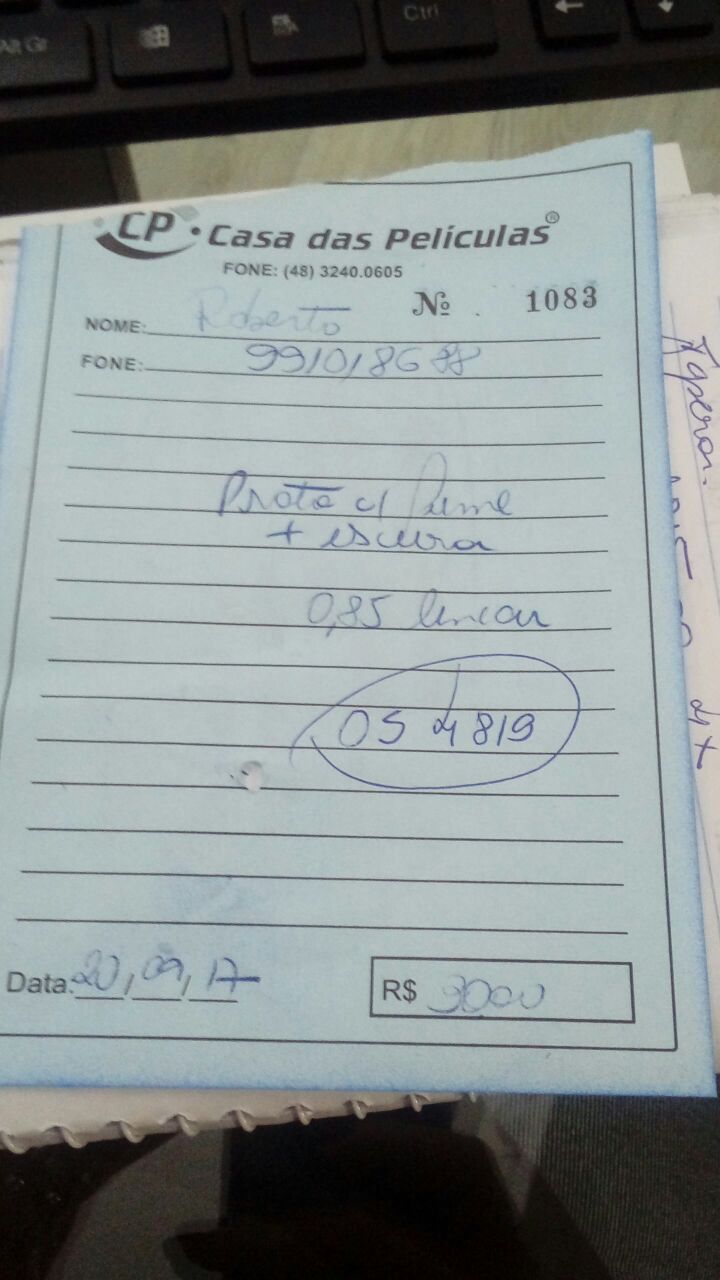 Alt Gr
Ctrl
CP · Casa das Películas®
FONE: (48) 3240.0605
Nº 1083
NOME: Roberto
FONE: 991018688
Prata c/ fume
+ escura
0,85 linear
OS 4819
Data: 20, 09, 17
R$ 30,00